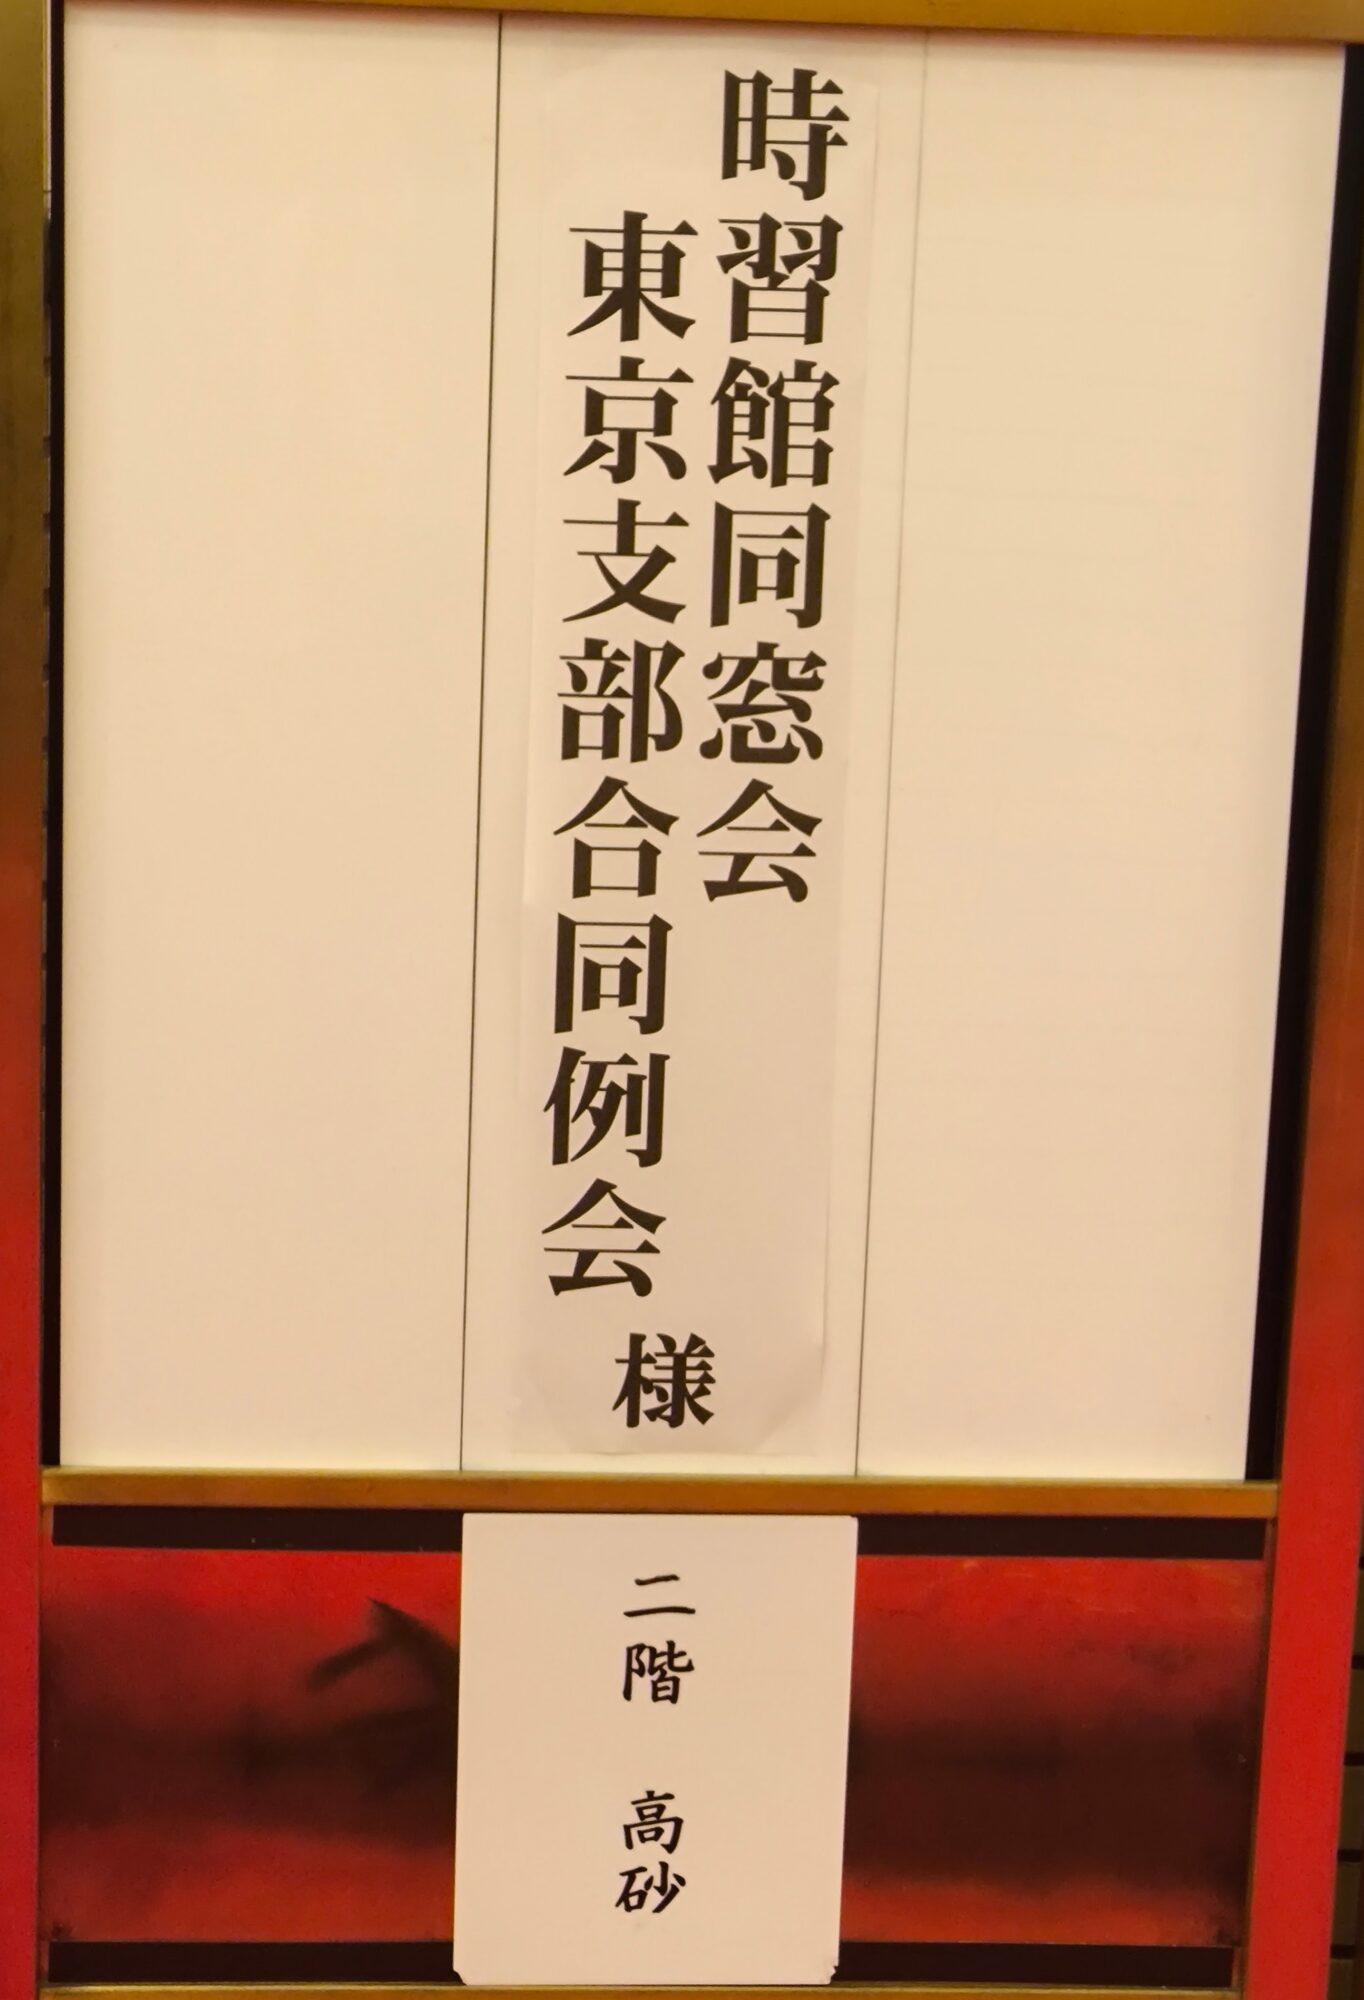 時習館同窓会
東京支部合同例会
様
二階 高砂